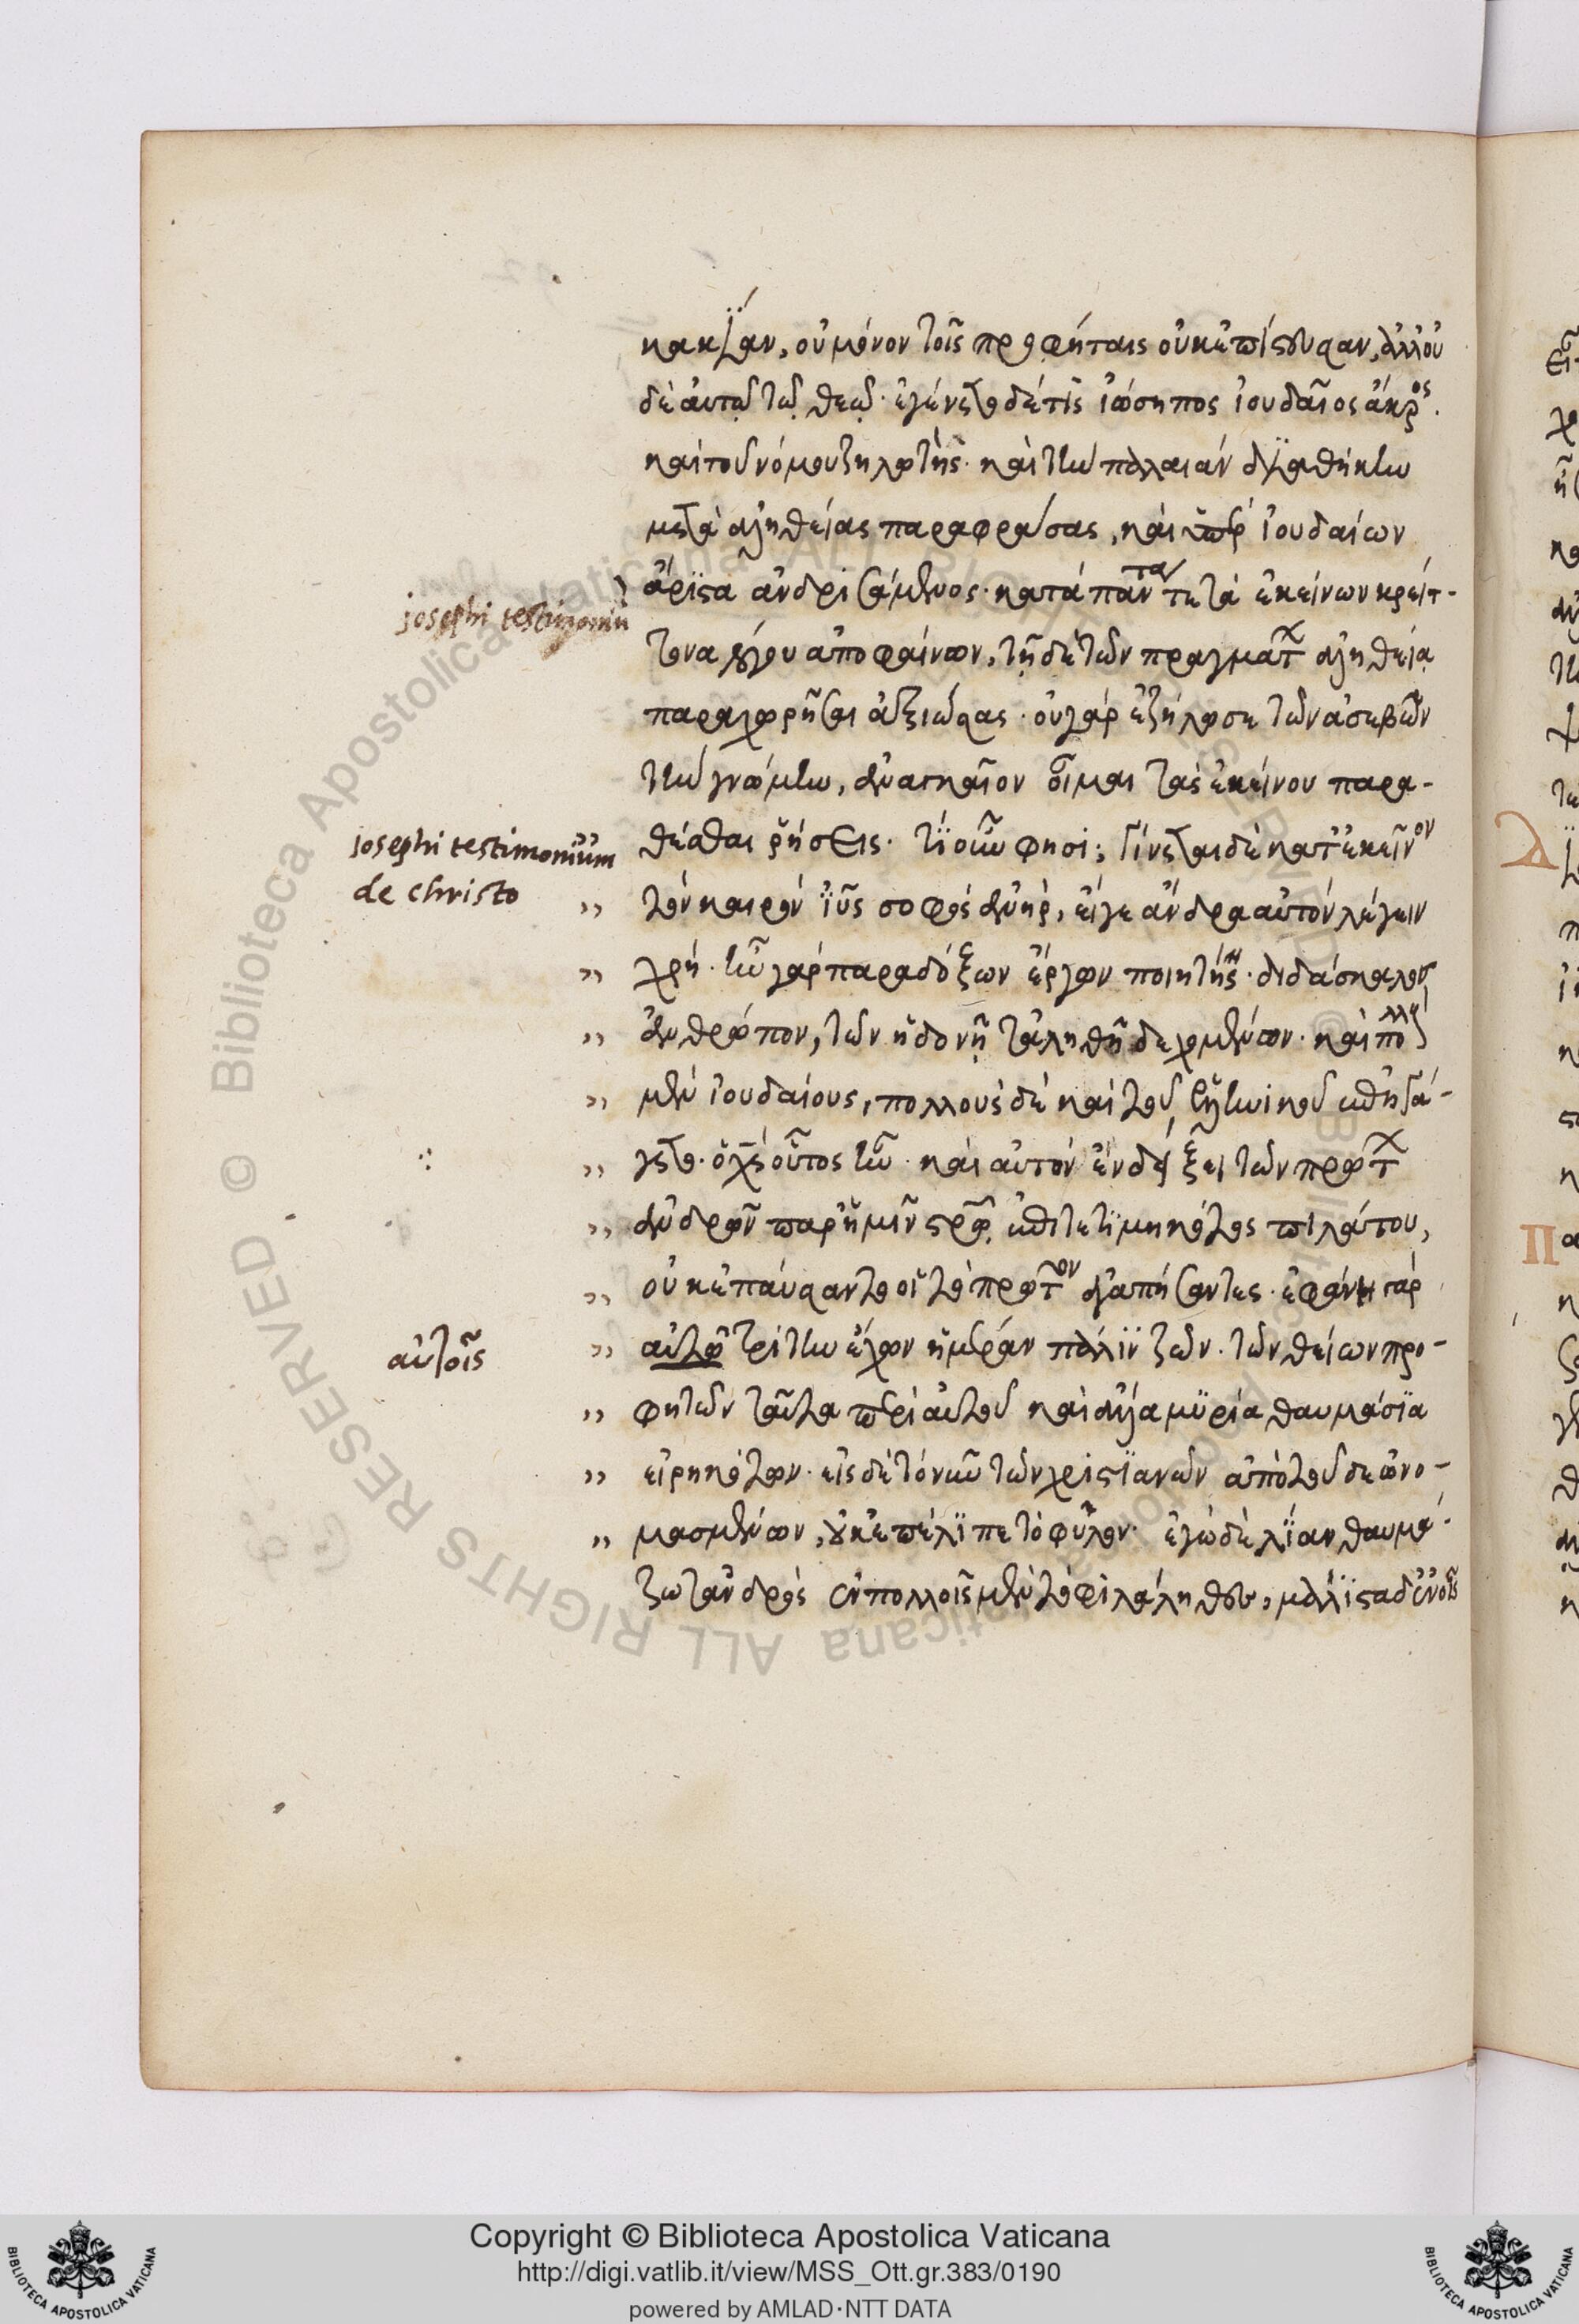 κακίαν, οὐ μόνον τοῖς προφήταις οὐκ ἐπίστευσαν, ἀλλ' οὐ
δὲ αὐτῷ τῷ θεῷ· ἐγένετο δέ τις ἰώσηπος ἰουδαῖος ἄκρος.
καὶ τοῦ νόμου ζηλωτής· καὶ τὴν παλαιὰν διαθήκην
μετὰ ἀληθείας παραφράσας, καὶ ὑπὲρ ἰουδαίων
ἄριστα ἀνδρισάμενος· κατὰ πάντα τε τὰ ἐκείνων κρείτ-
τονα λόγου ἀποφαίνων, τῇ δὲ τῶν πραγμάτ ἀληθείᾳ
παραχωρῆσαι ἀξιώσας· οὐ γὰρ ἐζήλωσε τῶν ἀσεβῶν
τὴν γνώμην, ἀναγκαῖον οἶμαι τὰς ἐκείνου παρα-
θέσθαι ῥήσεις· τί οὖν φησι; Γίνεται δὲ κατ' ἐκεῖνον
τὸν καιρὸν ἰῦς σοφὸς ἀνήρ, εἴγε ἄνδρα αὐτὸν λέγειν
χρή· ἦν γὰρ παραδόξων ἔργων ποιητής· διδάσκαλος
ἀνθρώπον, τῶν ἡδονῇ τἀληθῆ δεχομένων· καὶ πολλοὺς
μὲν ἰουδαίους, πολλοὺς δὲ καὶ τοῦ ἑλληνικοῦ ἐπηγά-
γετο· ὁ χς οὗτος ἦν· καὶ αὐτὸν ἐνδείξει τῶν πρώτ
ἀνδρῶν παρ' ἡμῖν στρῷ ἐπιτετιμηκότος πιλάτου,
οὐκ ἐπαύσαντο οἵ τὸ πρῶτον ἀγαπήσαντες· ἐφάνη γὰρ
αὐτῷ τρίτην ἔχων ἡμέραν πάλιν ζῶν· τῶν θείων προ-
φητῶν ταῦτα περὶ αὐτοῦ καὶ ἄλλα μυρία θαυμάσια
εἰρηκότων· εἰς δὲ τὸ νῦν τῶν χριστιανῶν ἀπὸ τοῦδε ὠνο-
μασμένων, οὐκ ἐπέλιπε τὸ φῦλον· ἐγὼ δὲ λίαν θαυμά-
ζω τἀνδρὸς ἐν πολλοῖς μὲν τὸ φιλάληθες, μάλιστα δ' ἐν οἷς
josephi testimoniu
josephi testimonium
de christo
αὐτοῖς
Copyright © Biblioteca Apostolica Vaticana
http://digi.vatlib.it/view/MSS_Ott.gr.383/0190
powered by AMLAD·NTT DATA
BIBLIOTECA APOSTOLICA VATICANA
BIBLIOTECA APOSTOLICA VATICANA